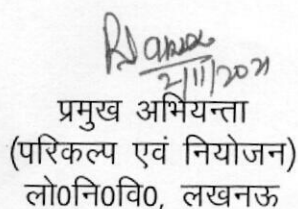 2/11/2021
प्रमुख अभियन्ता
(परिकल्प एवं नियोजन)
लो0नि0वि0, लखनऊ